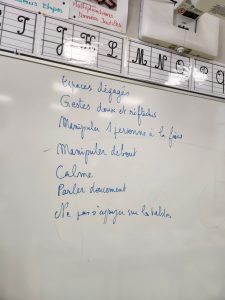 Multiplications
Données Inutiles
I J K L M N O P Q
Espaces dégagés
Gestes doux et réfléchis
Manipuler 1 personne à la fois
- Manipuler debout
Calme
Parler doucement
Ne pas s'appuyer sur la table